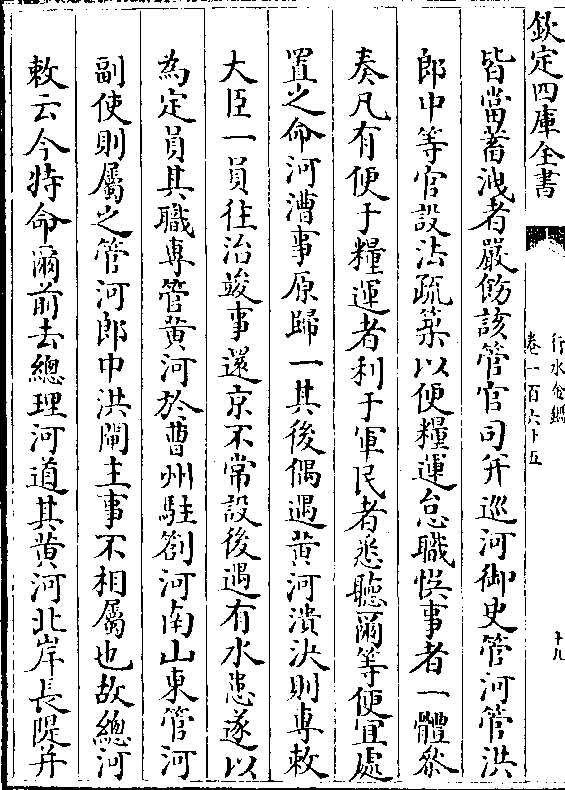 欽定四庫全書
行水金鑑
卷一百六十五
十九
皆當蓄洩者嚴飭該管官司并巡河御史管河管洪
郎中等官設法疏築以便糧運怠職悞事者一體叅
奏凡有便于糧運者利于軍民者悉聽爾等便宜處
置之命河漕事原歸一其後偶遇黄河潰決則専敕
大臣一員往治竣事還京不常設後遇有水患遂以
為定員其職専管黄河於曹州駐劄河南山東管河
副使則屬之管河郎中洪閘主事不相屬也故總河
敕云今特命爾前去總理河道其黄河北岸長隄并